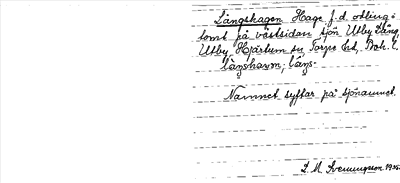 Långshagen Hage f.d. odlings-
tomt på västsidan sjön Utby Lång,
Utby, Hjärtum sn, Torpe hd, Boh. l.
långshavm; lăŋs-
Namnet syftar på sjönamnet.
L. M. Svenungsson 1935